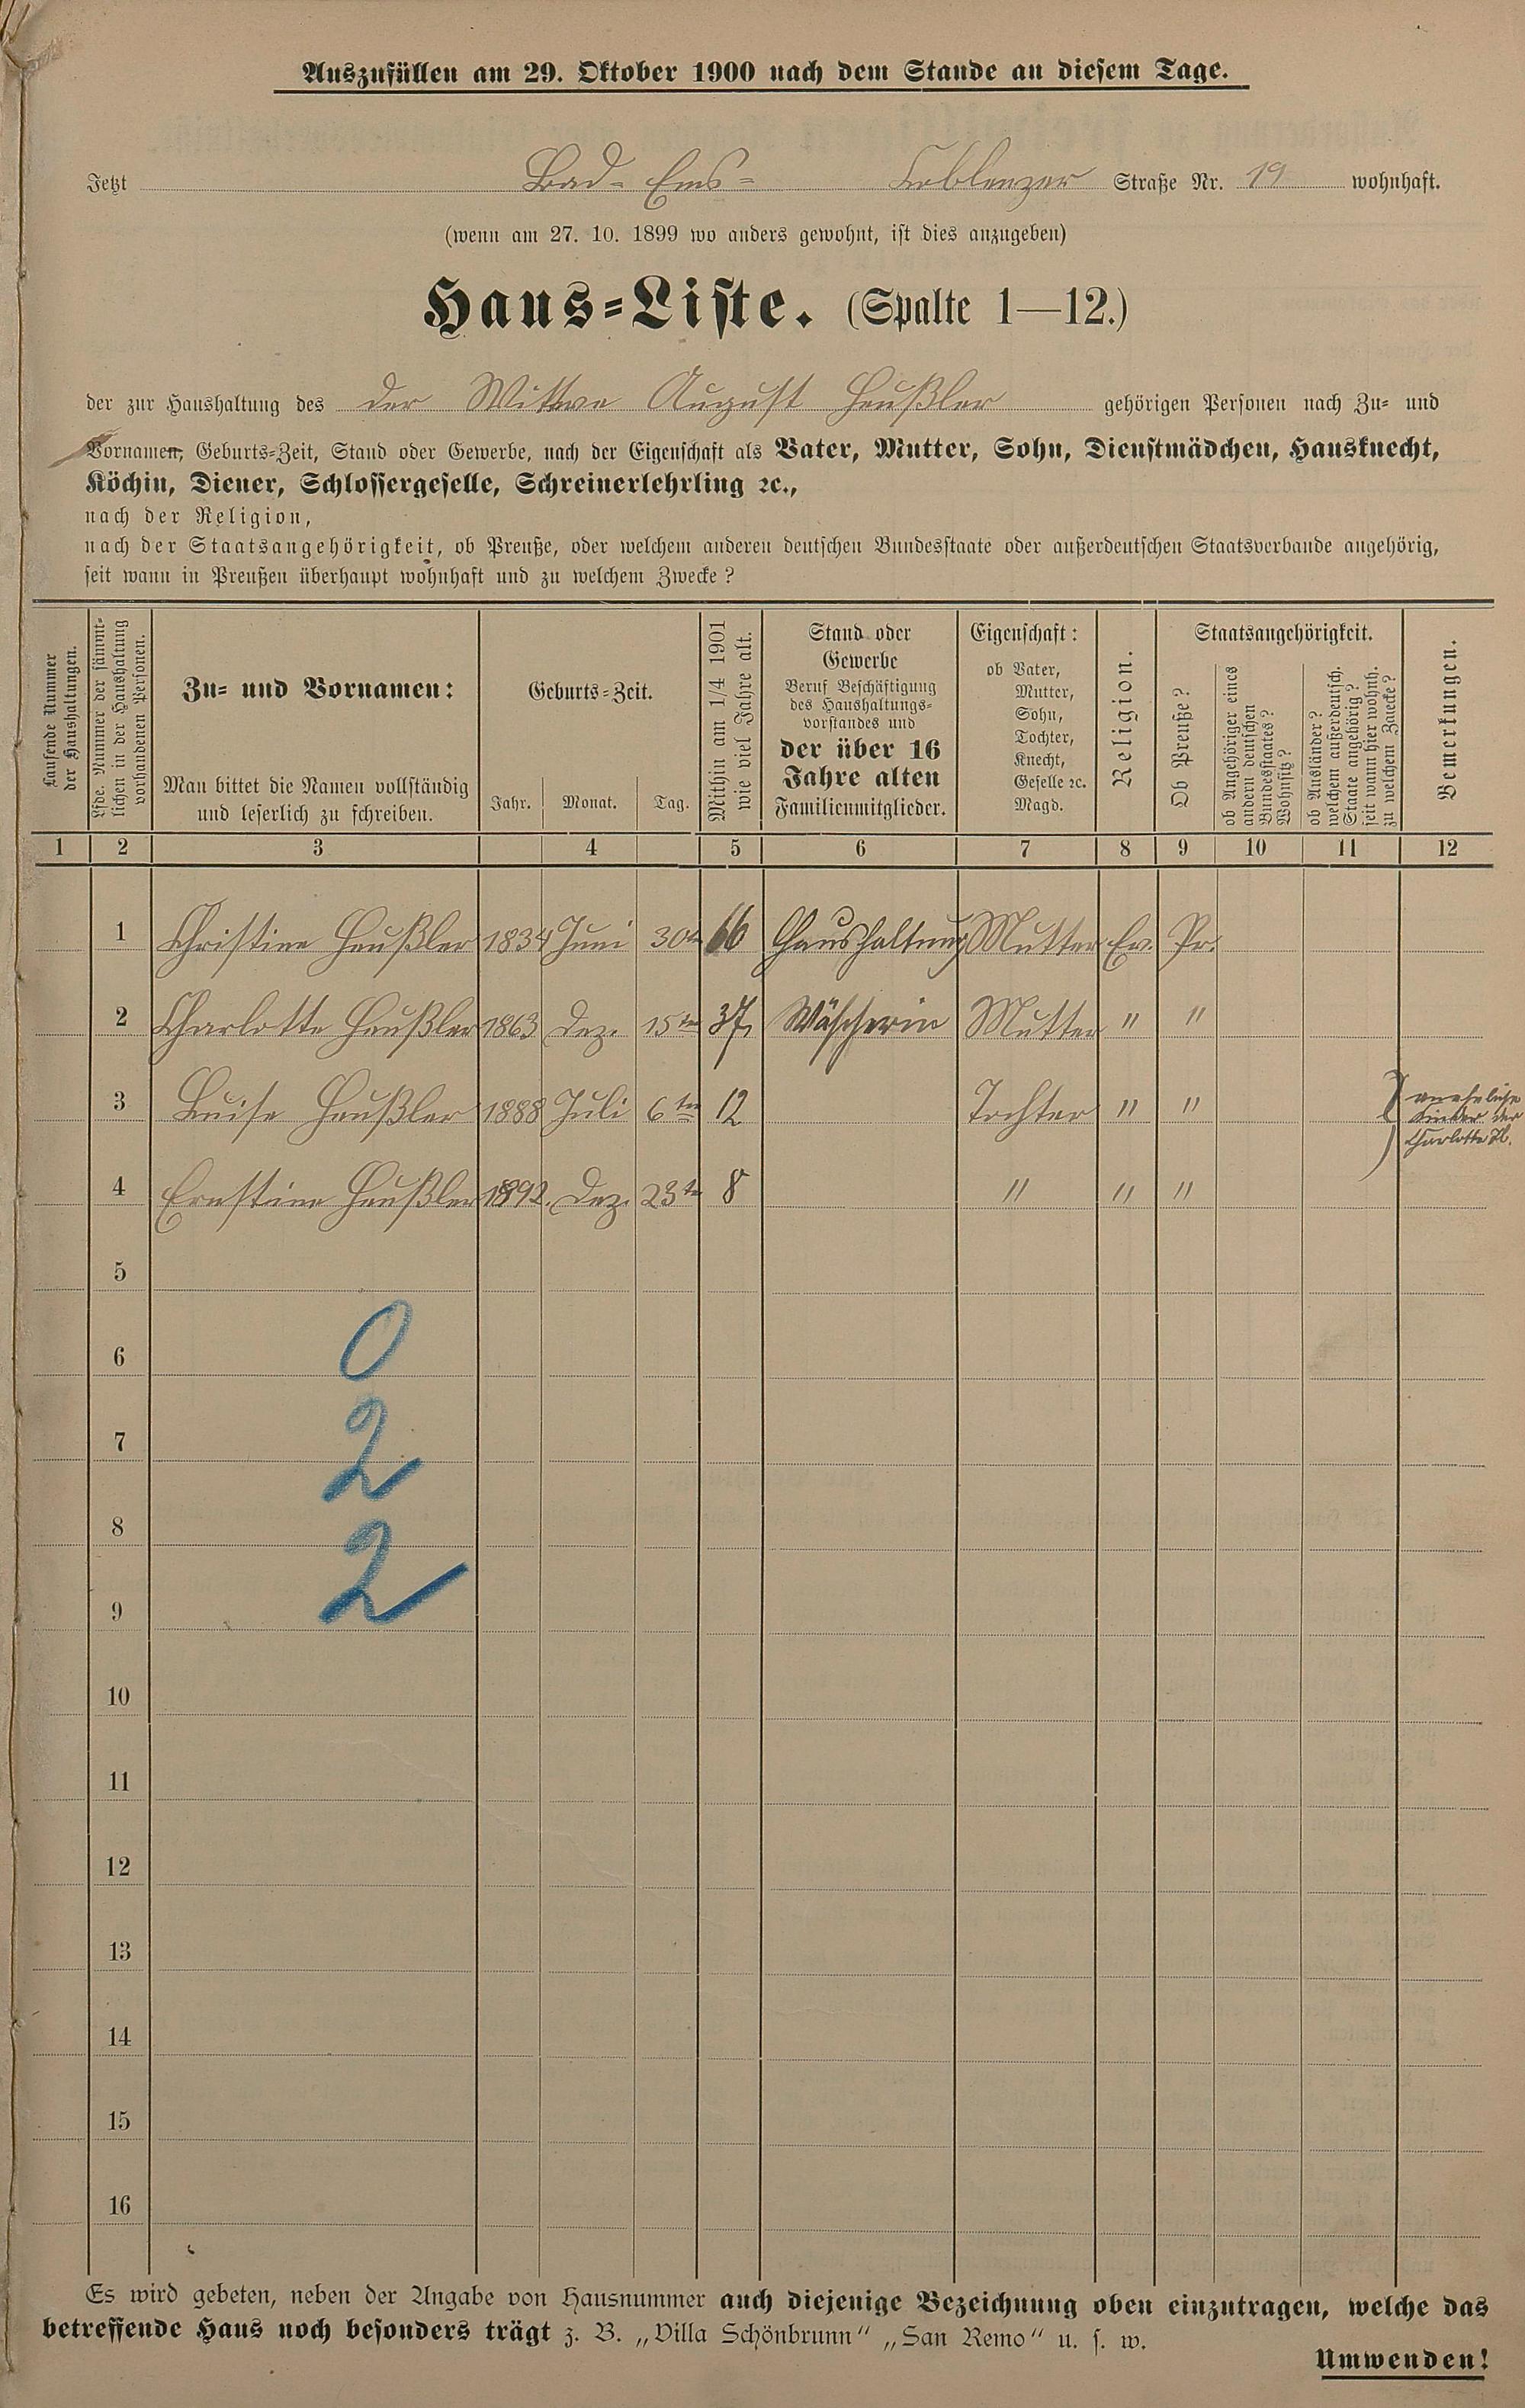 Auszufüllen am 29. Oktober 1900 nach dem Stande an diesem Tage.
Jetzt Bad-Ems- Coblenzer Straße Nr. 19 wohnhaft.
(wenn am 27. 10. 1899 wo anders gewohnt, ist dies anzugeben)
Haus-Liste. (Spalte 1—12.)
der zur Haushaltung des der Wittwe August Heußler gehörigen Personen nach Zu- und
Vornamen, Geburts-Zeit, Stand oder Gewerbe, nach der Eigenschaft als Vater, Mutter, Sohn, Dienstmädchen, Hausknecht,
Köchin, Diener, Schlossergeselle, Schreinerlehrling ꝛc.,
nach der Religion,
nach der Staatsangehörigkeit, ob Preuße, oder welchem anderen deutschen Bundesstaate oder außerdeutschen Staatsverbande angehörig,
seit wann in Preußen überhaupt wohnhaft und zu welchem Zwecke?
Laufende Nummer
der Haushaltungen.
Lfde. Nummer der sämmt-
lichen in der Haushaltung
vorhandenen Personen.
Zu- und Vornamen:
Man bittet die Namen vollständig
und leserlich zu schreiben.
Geburts-Zeit.
Jahr. Monat. Tag.
Mithin am 1/4 1901
wie viel Jahre alt.
Stand oder
Gewerbe
Beruf Beschäftigung
des Haushaltungs-
vorstandes und
der über 16
Jahre alten
Familienmitglieder.
Eigenschaft:
ob Vater,
Mutter,
Sohn,
Tochter,
Knecht,
Geselle ꝛc.
Magd.
Religion.
Staatsangehörigkeit.
Ob Preuße?
ob Angehöriger eines
andern deutschen
Bundesstaates?
Wohnsitz?
ob Ausländer?
welchem außerdeutsch.
Staate angehörig?
seit wann hier wohnh.
zu welchem Zwecke?
Bemerkungen.
1 2 3 4 5 6 7 8 9 10 11 12
1 Christine Heußler 1834 Juni 30te 66 Haushaltung Mutter Ev. Pr.
2 Charlotte Heußler 1863 Dez. 15ten 37, Wäscherin Mutter " "
3 Luise Heußler 1888 Juli 6ten 12 Tochter " "
uneheliche
Kinder der
Charlotte H.
4 Ernstine Heußler 1892. Dez. 23te 8 " " "
5
6
0
7
2
8
9
2
10
11
12
13
14
15
16
Es wird gebeten, neben der Angabe von Hausnummer auch diejenige Bezeichnung oben einzutragen, welche das
betreffende Haus noch besonders trägt z. B. „Villa Schönbrunn" „San Remo" u. s. w.
Umwenden!